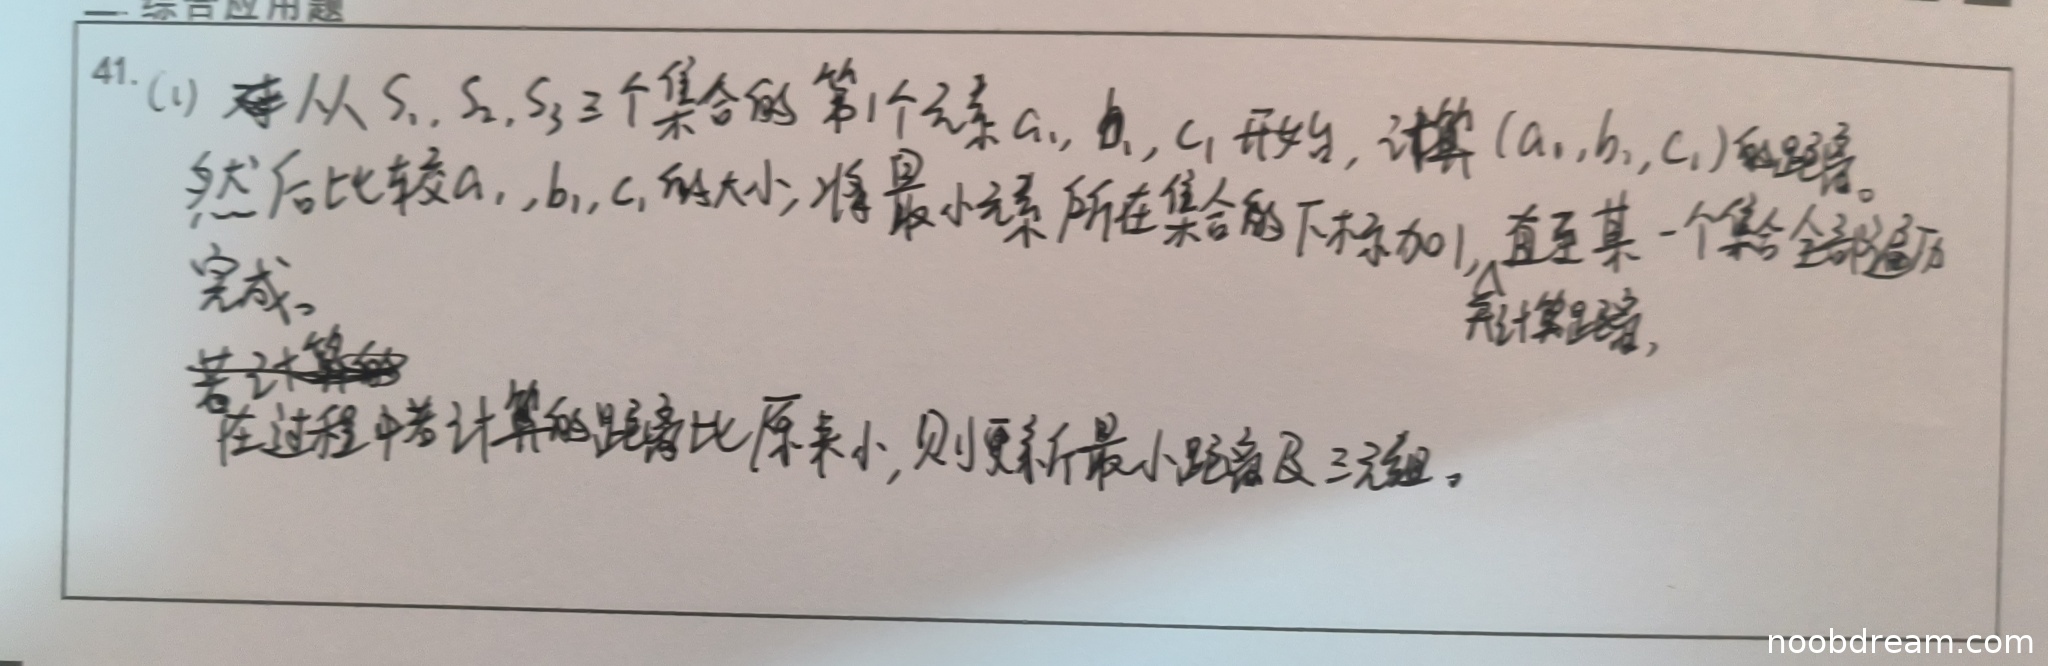 二.综合应用题
41.(1) 从S₁,S₂,S₃三个集合的第1个元素a₁,b₁,c₁开始,计算(a₁,b₁,c₁)的距离。
然后比较a₁,b₁,c₁的大小,将最小元素所在集合的下标加1,直至某一个集合全部遍历
并计算距离,
完成。
若计算的
在过程中若计算的距离比原来小,则更新最小距离及三元组。
noobdream.com